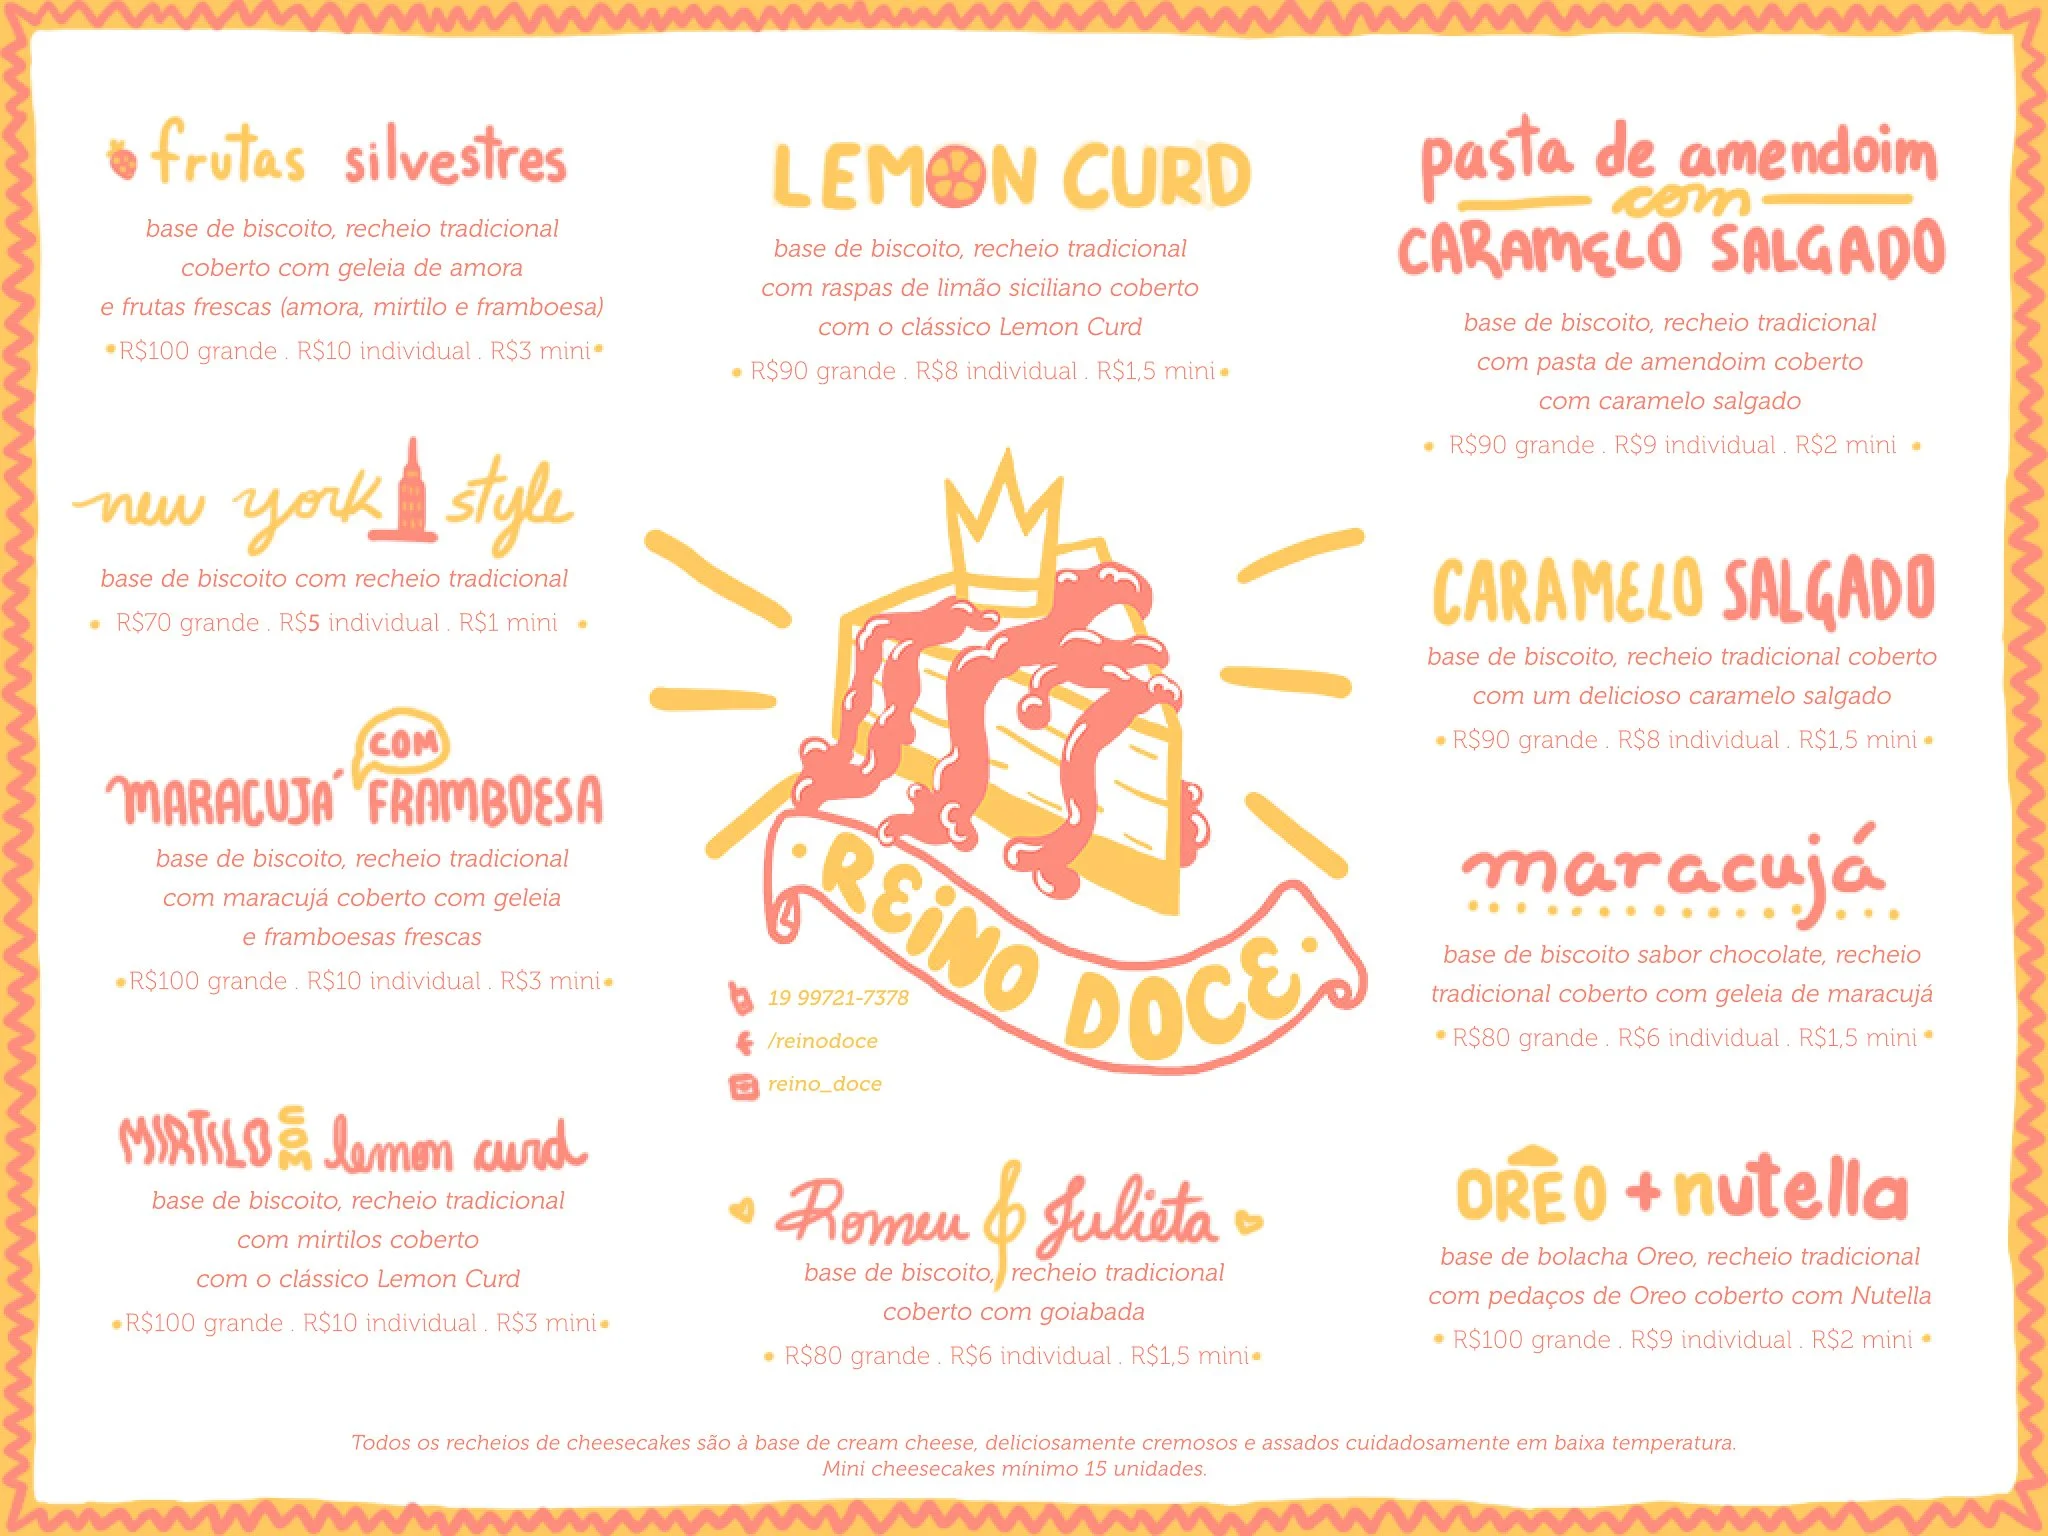 frutas silvestres
base de biscoito, recheio tradicional
coberto com geleia de amora
e frutas frescas (amora, mirtilo e framboesa)
•R$100 grande . R$10 individual . R$3 mini•
new york style
base de biscoito com recheio tradicional
• R$70 grande . R$5 individual . R$1 mini •
MARACUJÁ COM FRAMBOESA
base de biscoito, recheio tradicional
com maracujá coberto com geleia
e framboesas frescas
•R$100 grande . R$10 individual . R$3 mini•
MIRTILO COM lemon curd
base de biscoito, recheio tradicional
com mirtilos coberto
com o clássico Lemon Curd
•R$100 grande . R$10 individual . R$3 mini•
LEMON CURD
base de biscoito, recheio tradicional
com raspas de limão siciliano coberto
com o clássico Lemon Curd
• R$90 grande . R$8 individual . R$1,5 mini•
• REINO DOCE •
19 99721-7378
/reinodoce
reino_doce
Romeu Julieta
base de biscoito, recheio tradicional
coberto com goiabada
• R$80 grande . R$6 individual . R$1,5 mini•
pasta de amendoim
com
CARAMELO SALGADO
base de biscoito, recheio tradicional
com pasta de amendoim coberto
com caramelo salgado
• R$90 grande . R$9 individual . R$2 mini •
CARAMELO SALGADO
base de biscoito, recheio tradicional coberto
com um delicioso caramelo salgado
•R$90 grande . R$8 individual . R$1,5 mini•
maracujá
base de biscoito sabor chocolate, recheio
tradicional coberto com geleia de maracujá
•R$80 grande . R$6 individual . R$1,5 mini•
ORÊO + nutella
base de bolacha Oreo, recheio tradicional
com pedaços de Oreo coberto com Nutella
• R$100 grande . R$9 individual . R$2 mini •
Todos os recheios de cheesecakes são à base de cream cheese, deliciosamente cremosos e assados cuidadosamente em baixa temperatura.
Mini cheesecakes mínimo 15 unidades.